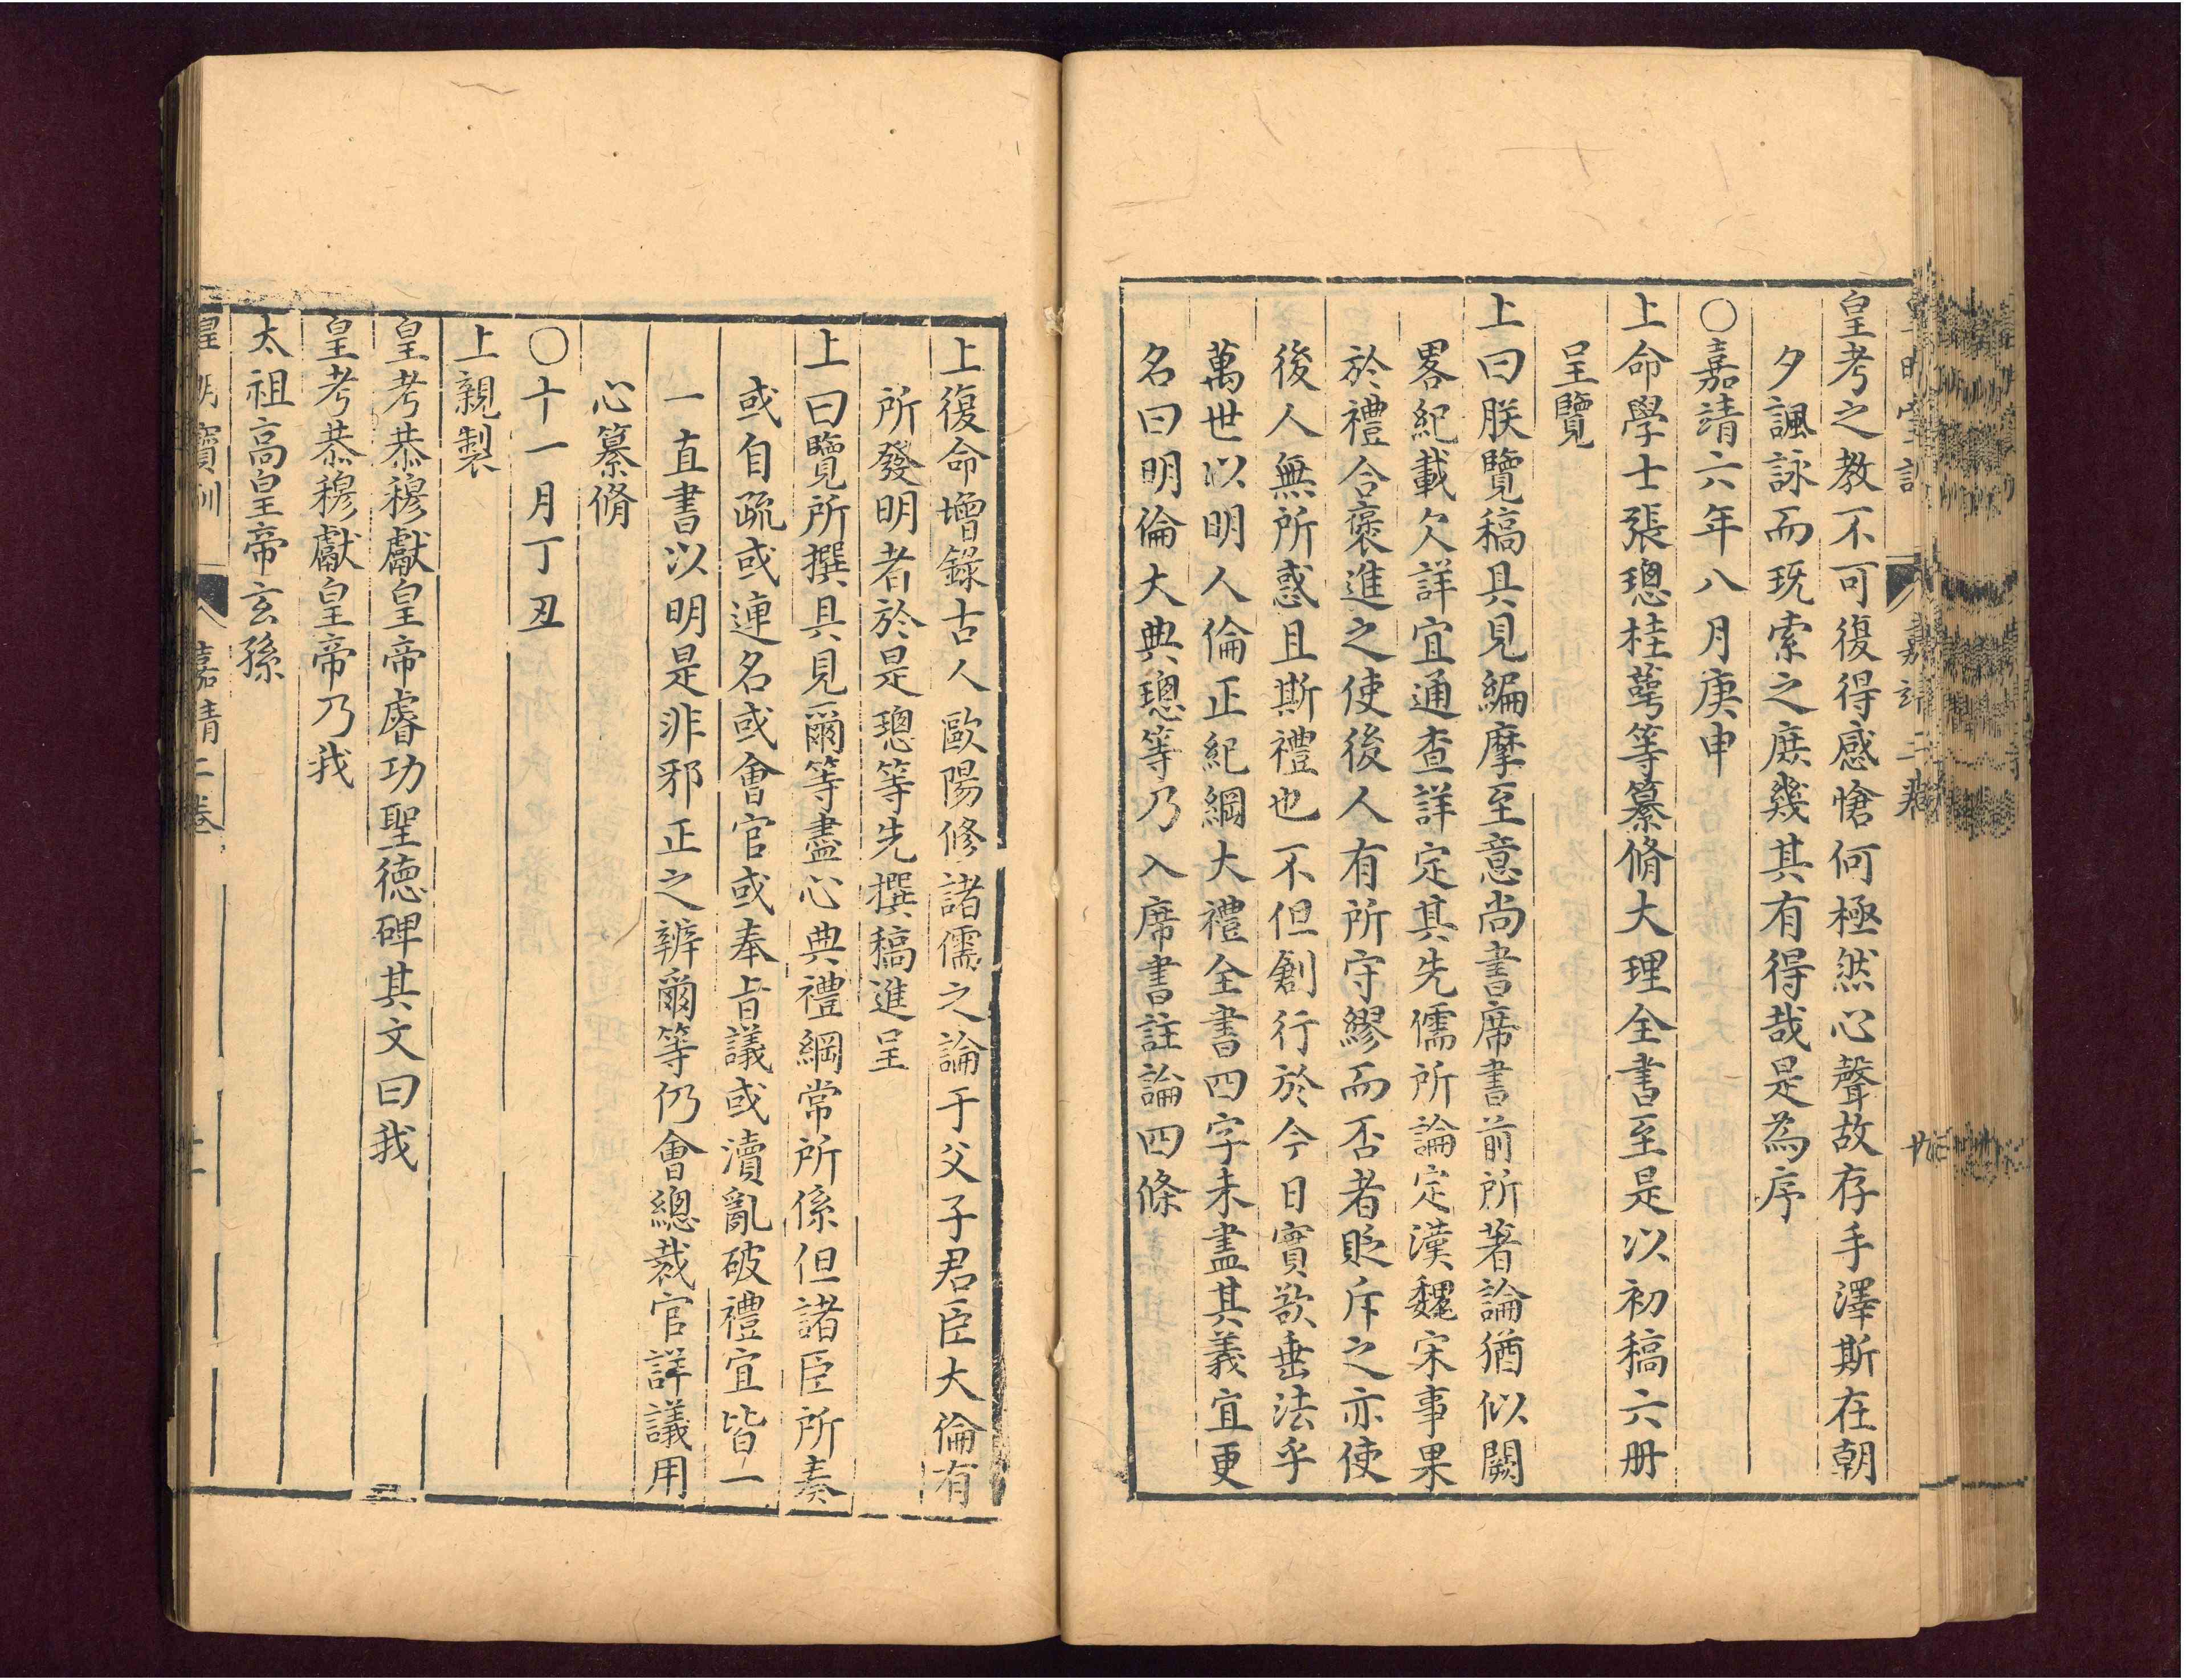 皇考之教不可復得感愴何極然心聲故存手澤斯在朝
夕諷詠而玩索之庶幾其有得哉是為序
○嘉靖六年八月庚申
上命學士張璁桂蕚等纂脩大理全書至是以初稿六册
呈覽
上曰朕覽稿具見編摩至意尚書席書前所著論猶似闕
畧紀載欠詳宜通查詳定其先儒所論定漢魏宋事果
於禮合褒進之使後人有所守繆而否者貶斥之亦使
後人無所惑且斯禮也不但創行於今日實欲垂法乎
萬世以明人倫正紀綱大禮全書四字未盡其義宜更
名曰明倫大典璁等乃入席書註論四條
上復命增錄古人歐陽修諸儒之論于父子君臣大倫有
所發明者於是璁等先撰稿進呈
上曰覽所撰具見爾等盡心典禮綱常所係但諸臣所奏
或自疏或連名或會官或奉旨議或瀆亂破禮宜皆一
一直書以明是非邪正之辨爾等仍會總裁官詳議用
心纂脩
○十一月丁丑
上親製
皇考恭穆獻皇帝睿功聖德碑其文曰我
皇考恭穆獻皇帝乃我
太祖高皇帝玄孫
皇明寶訓 嘉靖二卷